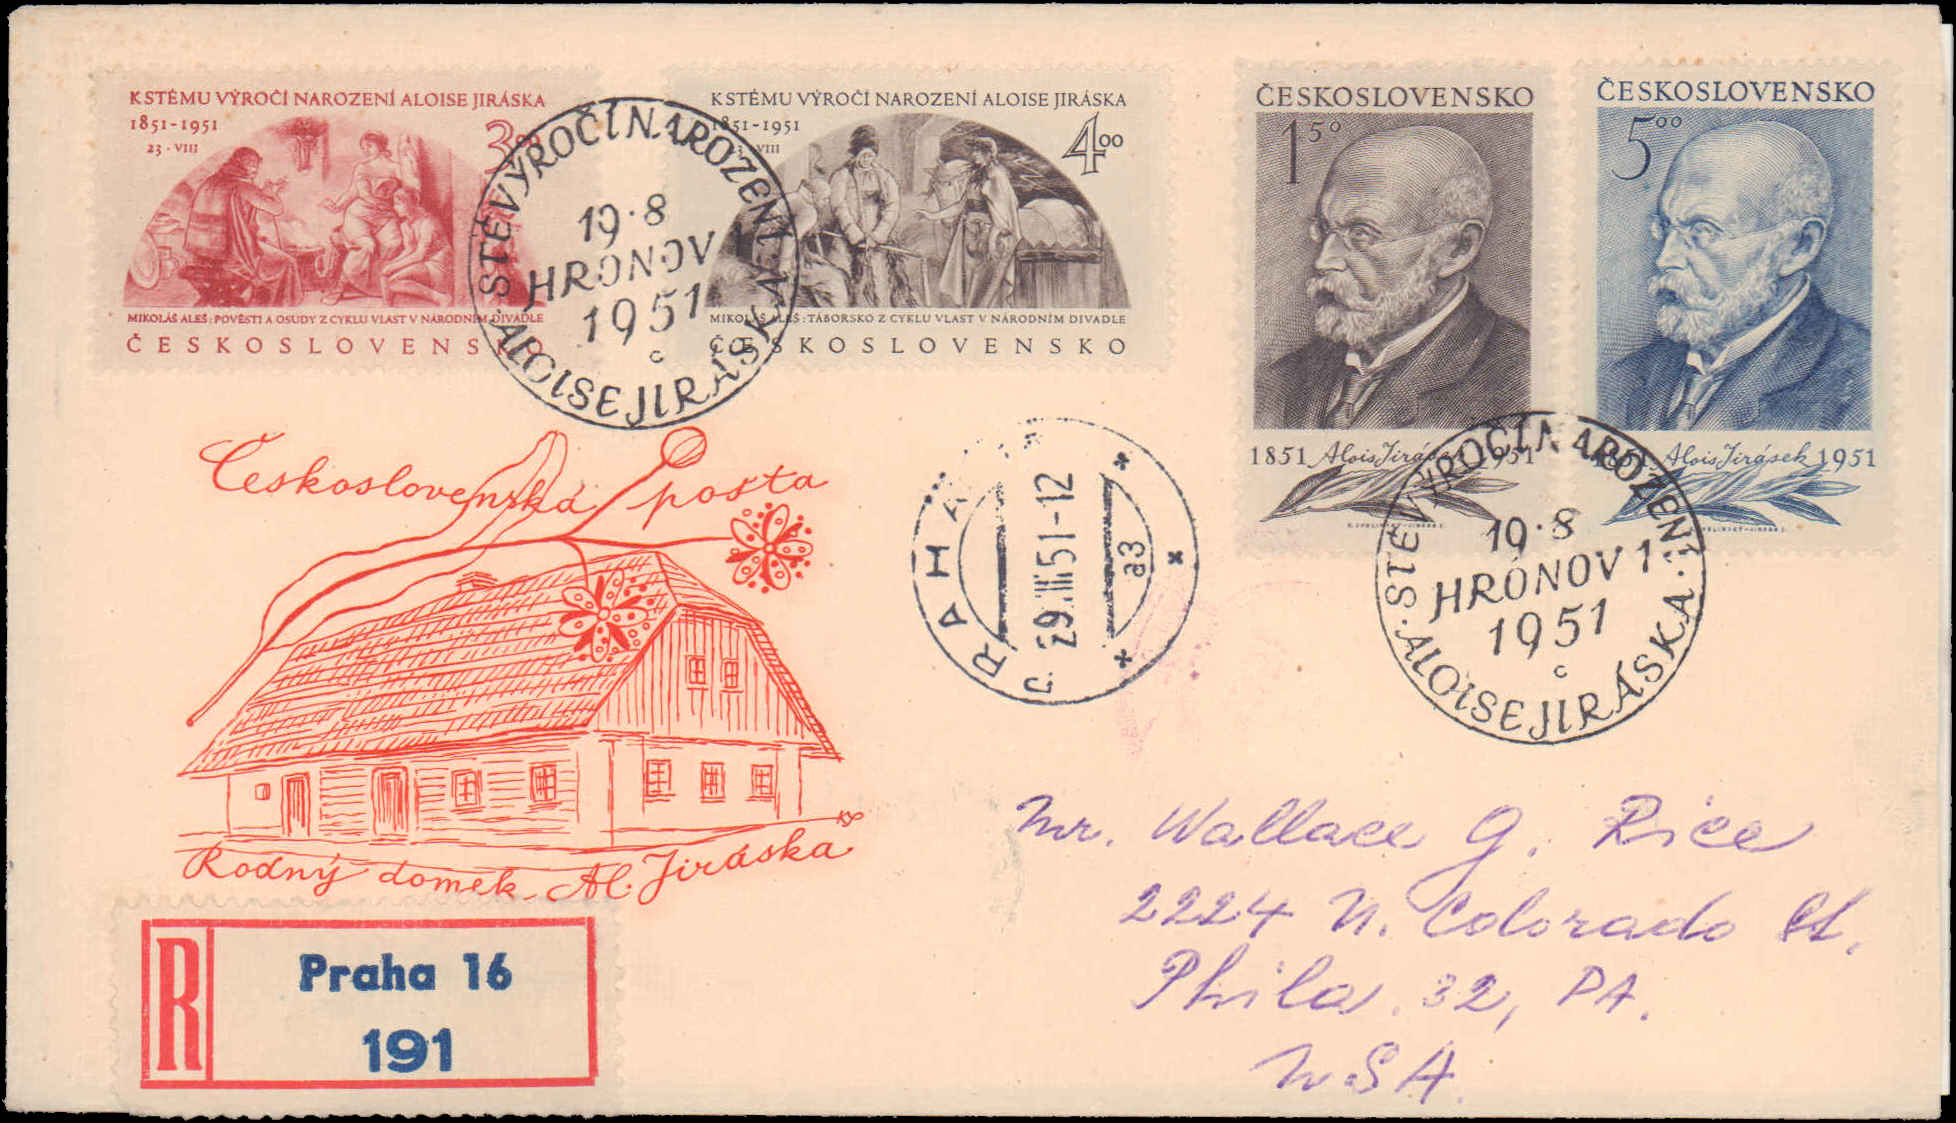 K STÉMU VÝROČÍ NAROZENÍ ALOISE JIRÁSKA
1851-1951
23 · VIII
MIKOLÁŠ ALEŠ: POVĚSTI A OSUDY Z CYKLU VLAST V NÁRODNÍM DIVADLE
ČESKOSLOVENSKO
K STÉMU VÝROČÍ NAROZENÍ ALOISE JIRÁSKA
1851-1951
VIII
4⁰⁰
MIKOLÁŠ ALEŠ: TÁBORSKO Z CYKLU VLAST V NÁRODNÍM DIVADLE
ČESKOSLOVENSKO
ČESKOSLOVENSKO
1⁵⁰
1851 Alois Jirásek 1951
ČESKOSLOVENSKO
5⁰⁰
1851 Alois Jirásek 1951
STÉ VÝROČÍ NAROZENÍ
19·8
HRONOV 1
1951
c
· ALOISE JIRÁSKA ·
Československá pošta
PRAHA
29.VIII.51-12
a3
STÉ VÝROČÍ NAROZENÍ
19·8
HRONOV 1
1951
c
· ALOISE JIRÁSKA ·
Rodný domek Al. Jiráska
R
Praha 16
191
Mr. Wallace G. Rice
2224 N. Colorado St.
Phila. 32, PA.
USA.